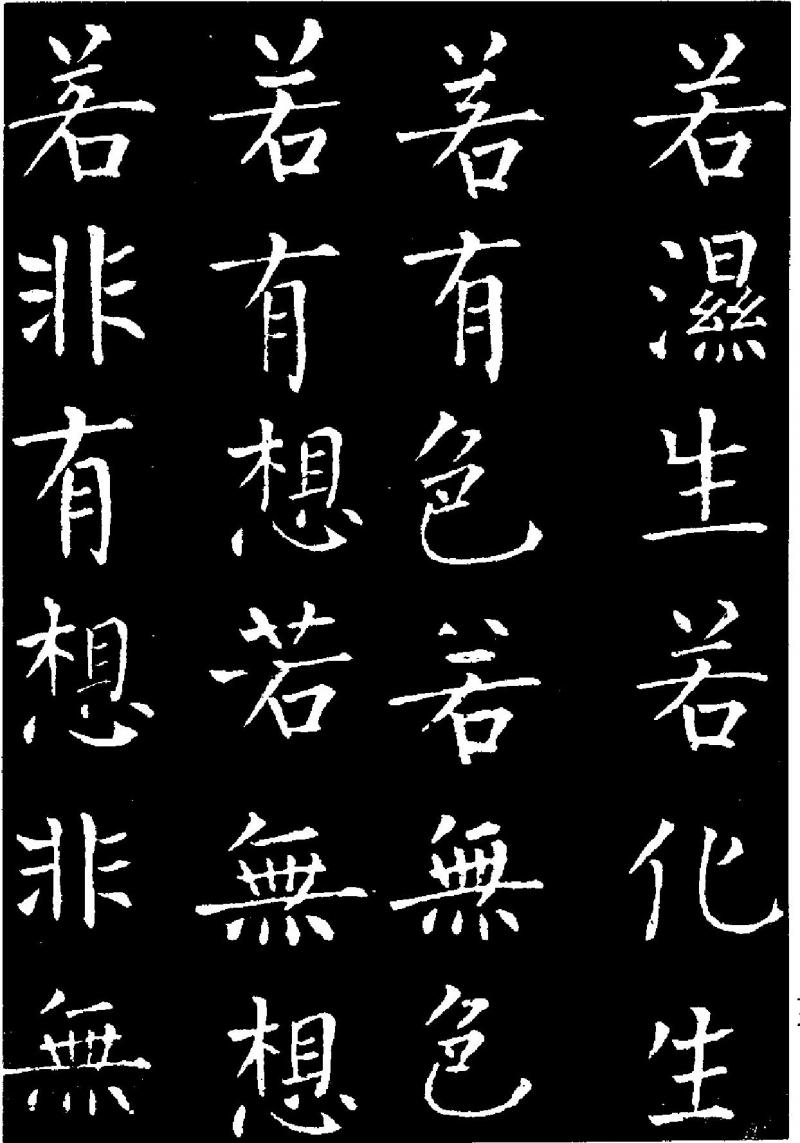 若濕生若化生
若有色若無色
若有想若無想
若非有想非無